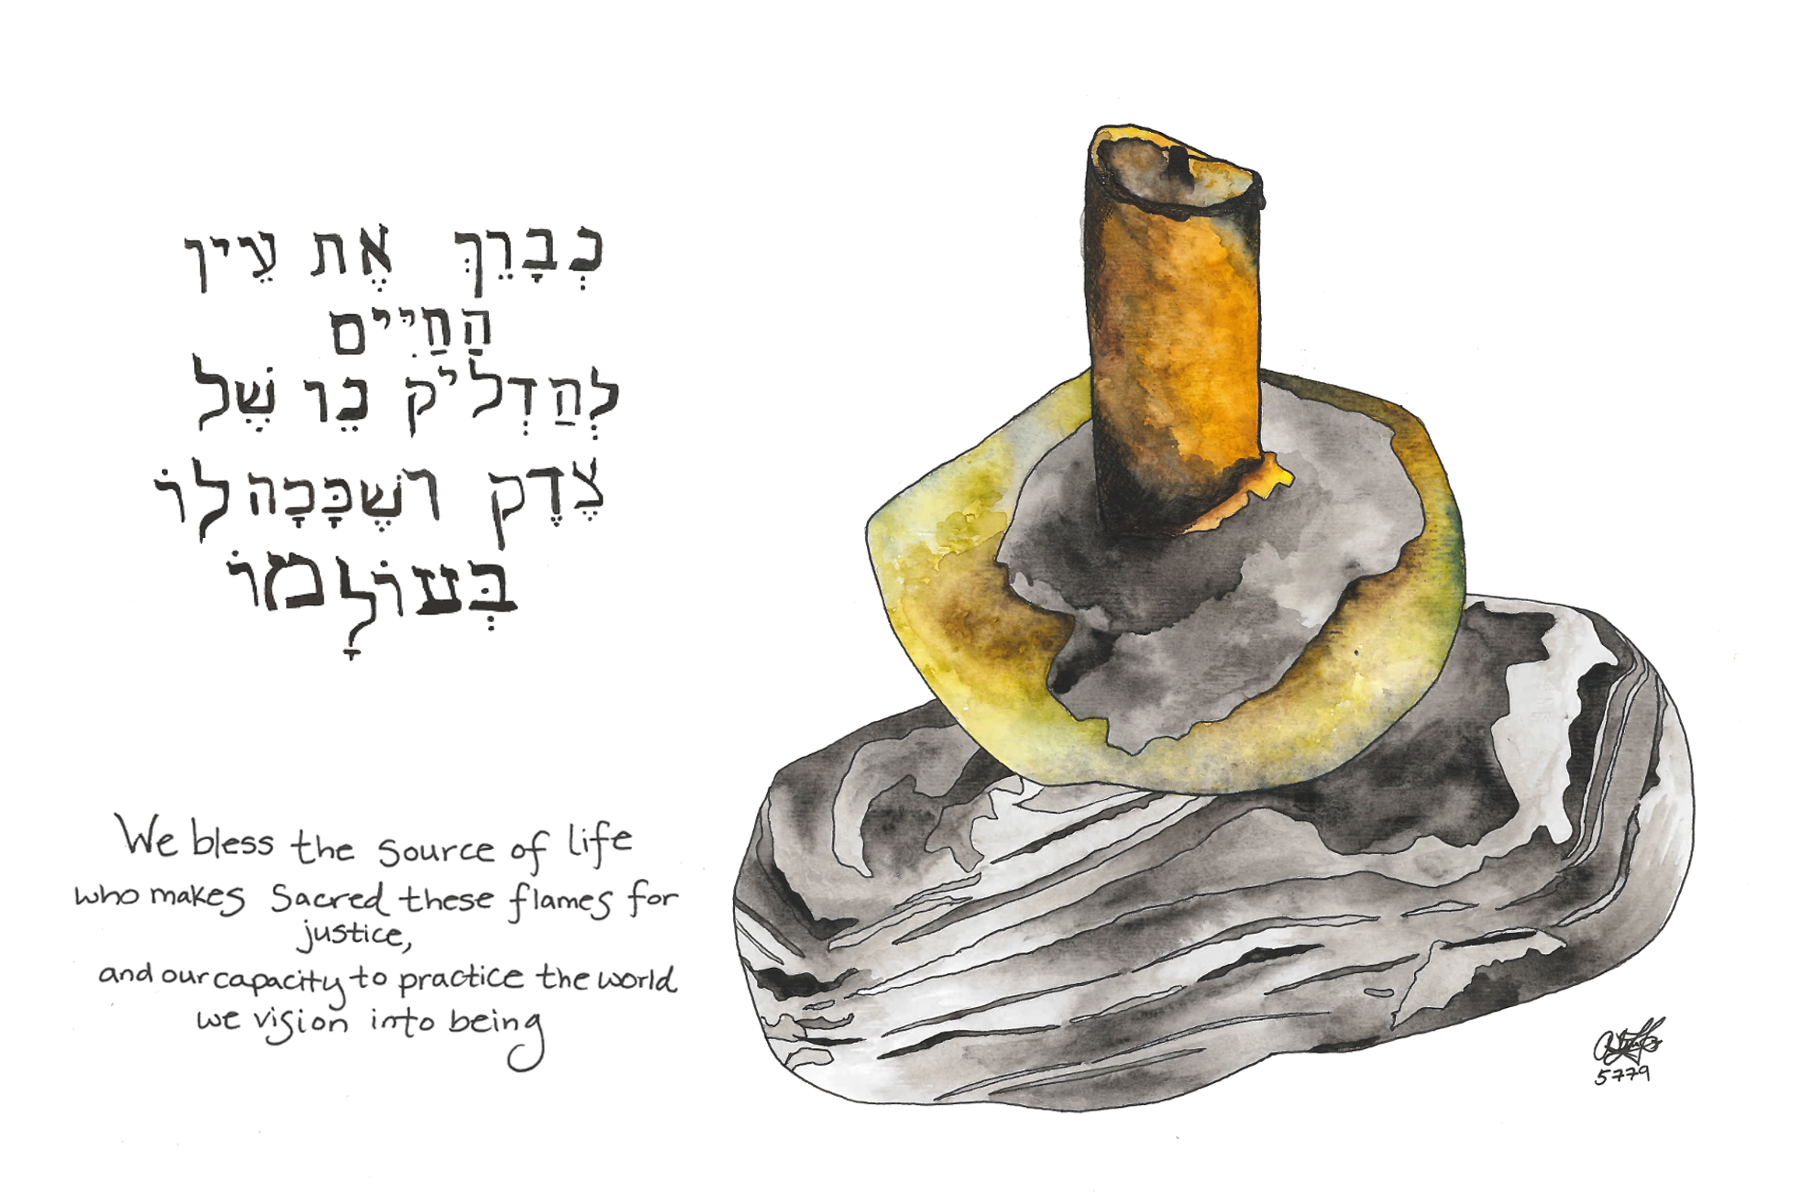 נְבָרֵךְ אֶת עֵין
הַחַיִּים
לְהַדְלִיק נֵר שֶׁל
צֶדֶק ושֶׁכָּכָה לוֹ
בְּעוֹלָמוֹ
We bless the source of life
who makes sacred these flames for
justice,
and our capacity to practice the world
we vision into being
5779